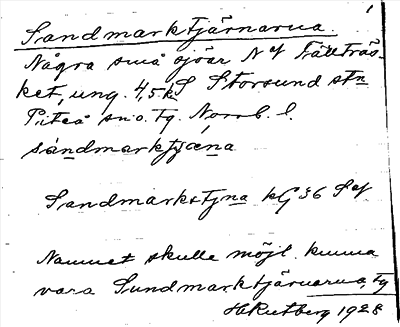 1
Sandmarktjärnarna
Några små sjöar N of Fällträs-
ket, ung. 4,5 k S Storsund stn
Piteå sn o. tg. Norrb. l.
sándmarktjæ̀na
Sandmarkstjna kG 36 S of
Namnet skulle möjl. kunna
vara Sundmarktjärnarna, Tg
H Rutberg 1928